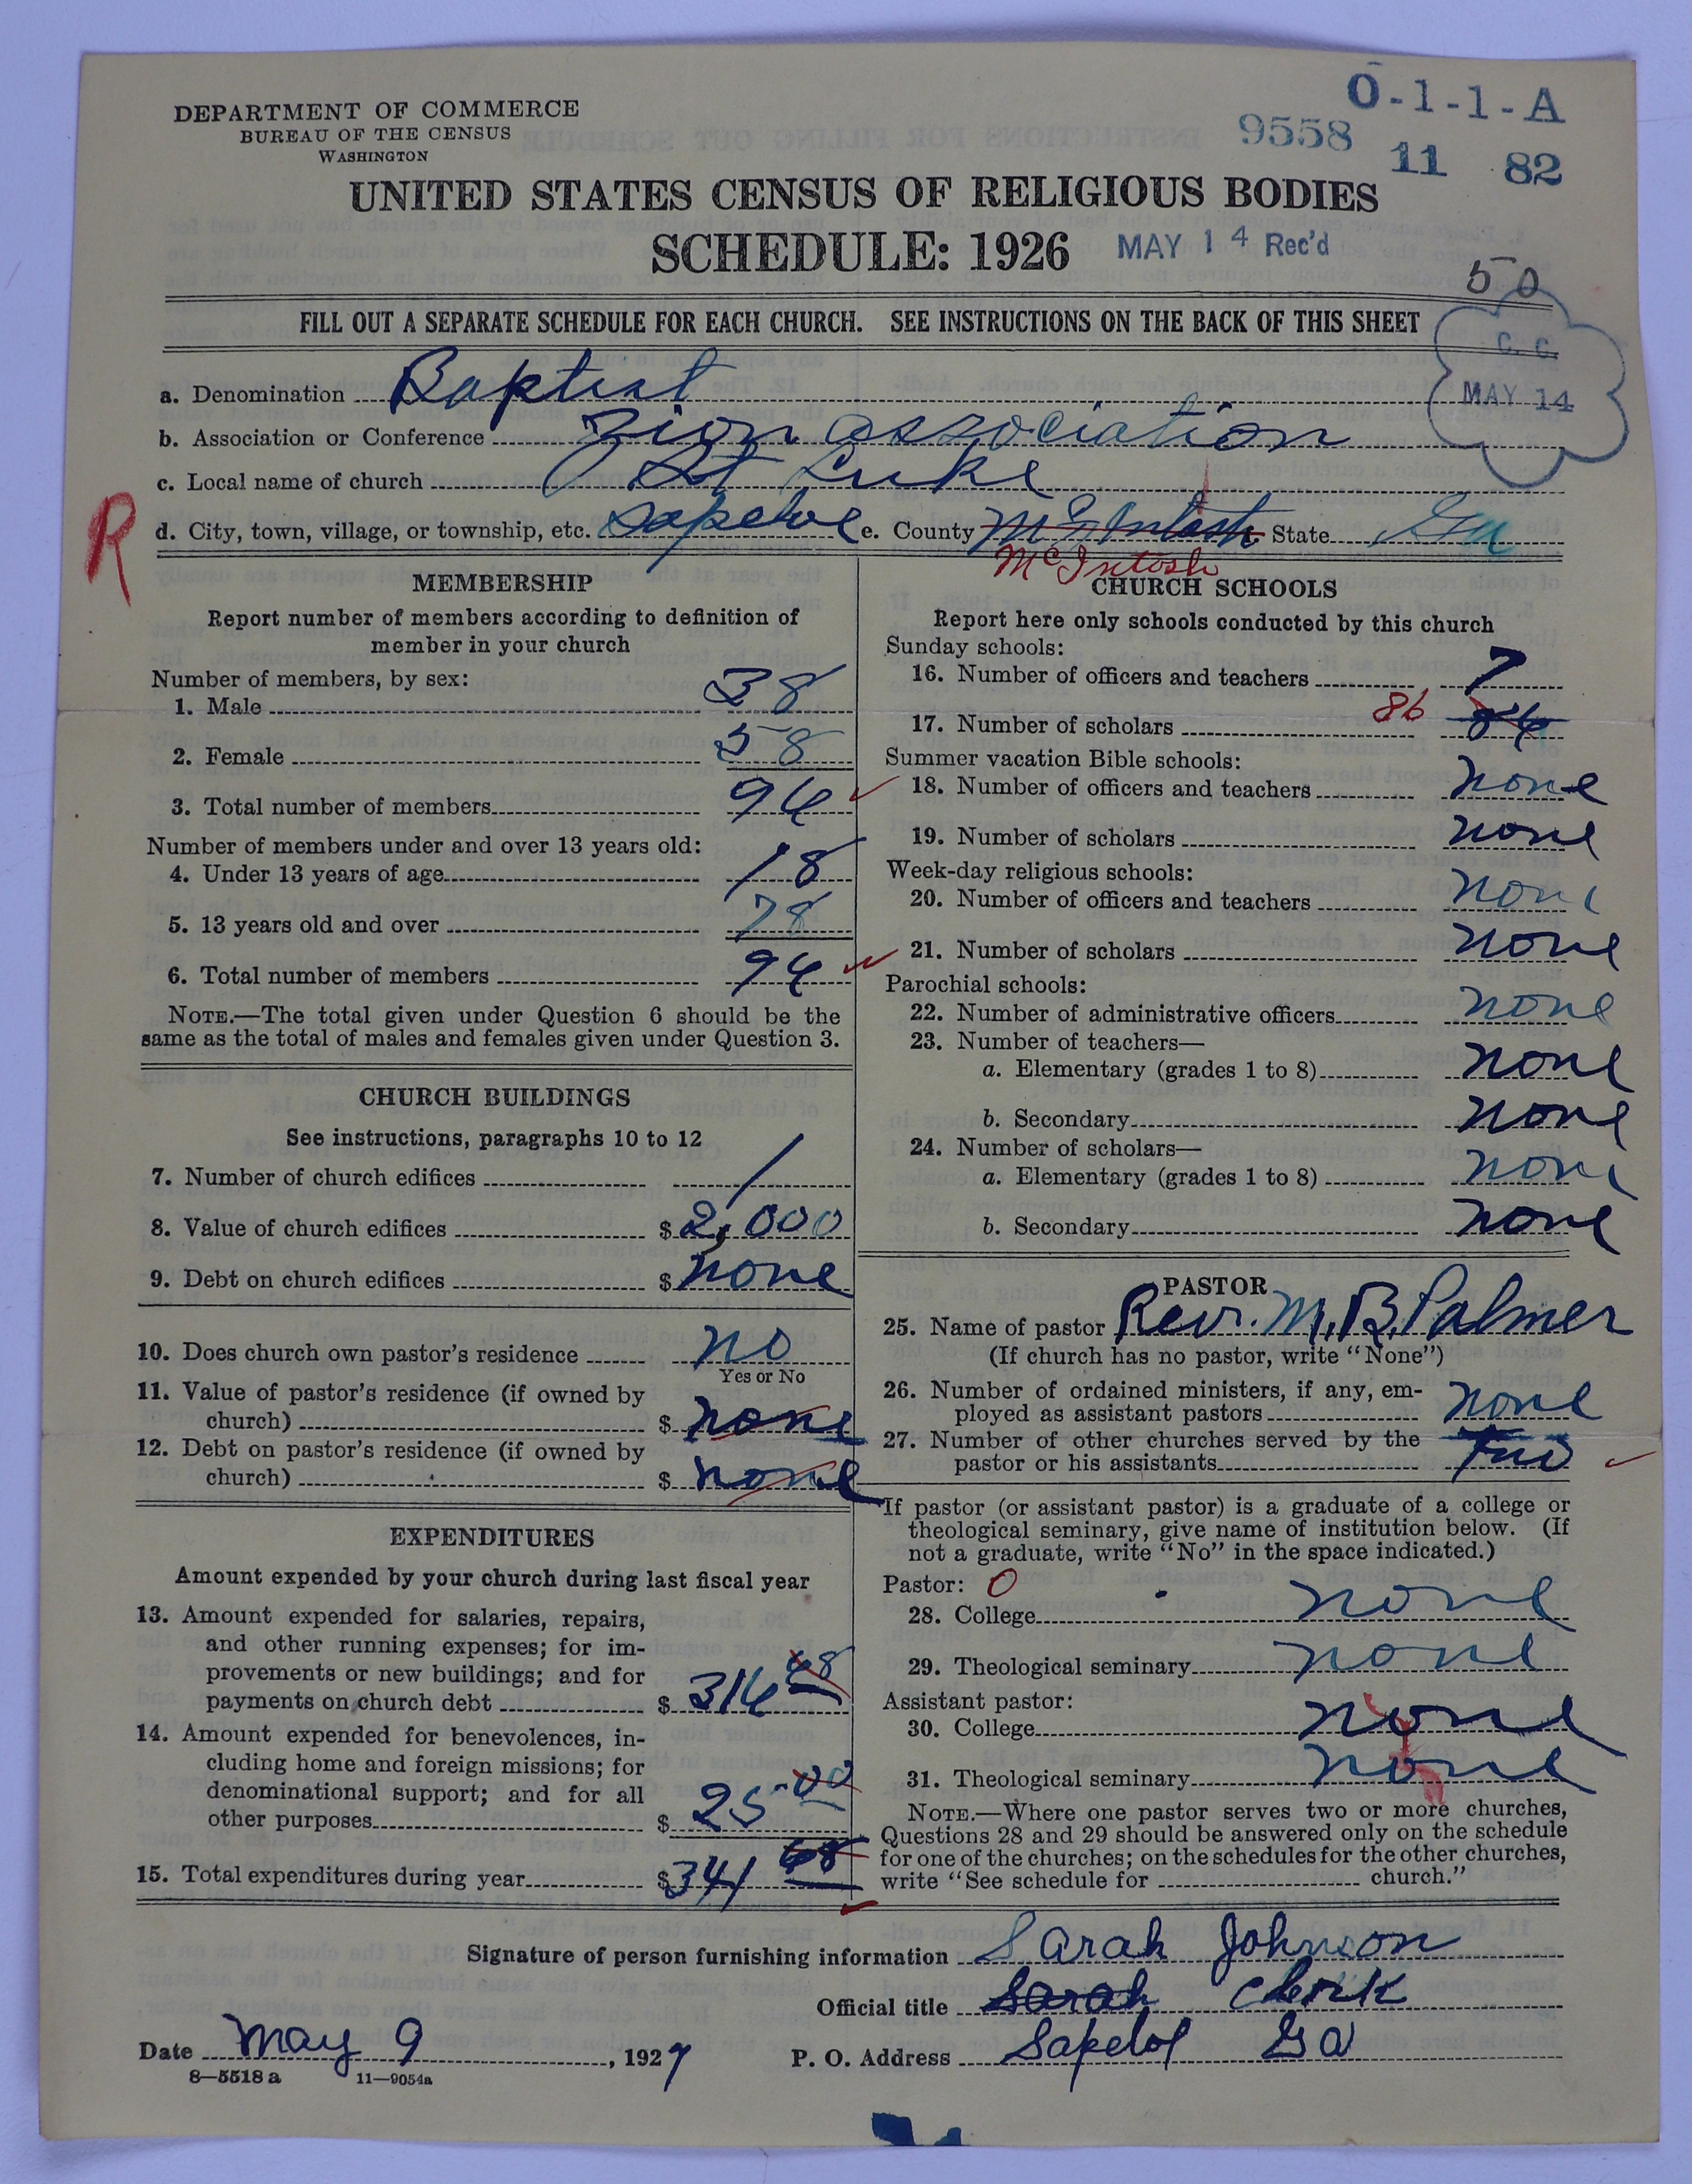 DEPARTMENT OF COMMERCE
BUREAU OF THE CENSUS
WASHINGTON
O-1-1-A
9558 11 82
UNITED STATES CENSUS OF RELIGIOUS BODIES
SCHEDULE: 1926 MAY 14 Rec'd
50
FILL OUT A SEPARATE SCHEDULE FOR EACH CHURCH. SEE INSTRUCTIONS ON THE BACK OF THIS SHEET
C. C.
MAY 14
a. Denomination Baptist
b. Association or Conference Zion association
c. Local name of church St Luke
R
d. City, town, village, or township, etc. Sapeloe e. County McIntosh State Ga
McIntosh
MEMBERSHIP
Report number of members according to definition of
member in your church
Number of members, by sex:
1. Male 38
2. Female 58
3. Total number of members 96
Number of members under and over 13 years old:
4. Under 13 years of age 18
5. 13 years old and over 78
6. Total number of members 96
NOTE.—The total given under Question 6 should be the
same as the total of males and females given under Question 3.
CHURCH BUILDINGS
See instructions, paragraphs 10 to 12
7. Number of church edifices 1
8. Value of church edifices $ 2,000
9. Debt on church edifices $ none
10. Does church own pastor's residence no
Yes or No
11. Value of pastor's residence (if owned by
church) $ none
12. Debt on pastor's residence (if owned by
church) $ none
EXPENDITURES
Amount expended by your church during last fiscal year
13. Amount expended for salaries, repairs,
and other running expenses; for im-
provements or new buildings; and for
payments on church debt $ 316 68
14. Amount expended for benevolences, in-
cluding home and foreign missions; for
denominational support; and for all
other purposes $ 25 00
15. Total expenditures during year $ 341 68
CHURCH SCHOOLS
Report here only schools conducted by this church
Sunday schools:
16. Number of officers and teachers 7
17. Number of scholars 86
Summer vacation Bible schools:
18. Number of officers and teachers none
19. Number of scholars none
Week-day religious schools:
20. Number of officers and teachers none
21. Number of scholars none
Parochial schools:
22. Number of administrative officers none
23. Number of teachers—
a. Elementary (grades 1 to 8) none
b. Secondary none
24. Number of scholars—
a. Elementary (grades 1 to 8) none
b. Secondary none
PASTOR
25. Name of pastor Revr. M. B. Palmer
(If church has no pastor, write "None")
26. Number of ordained ministers, if any, em-
ployed as assistant pastors none
27. Number of other churches served by the
pastor or his assistants two
If pastor (or assistant pastor) is a graduate of a college or
theological seminary, give name of institution below. (If
not a graduate, write "No" in the space indicated.)
Pastor: 0
28. College none
29. Theological seminary none
Assistant pastor:
30. College none
31. Theological seminary none
NOTE.—Where one pastor serves two or more churches,
Questions 28 and 29 should be answered only on the schedule
for one of the churches; on the schedules for the other churches,
write "See schedule for church."
Signature of person furnishing information Sarah Johnson
Official title Sarah Clerk
Date May 9, 1927 P. O. Address Sapelol Ga
8—5518 a 11—9054a